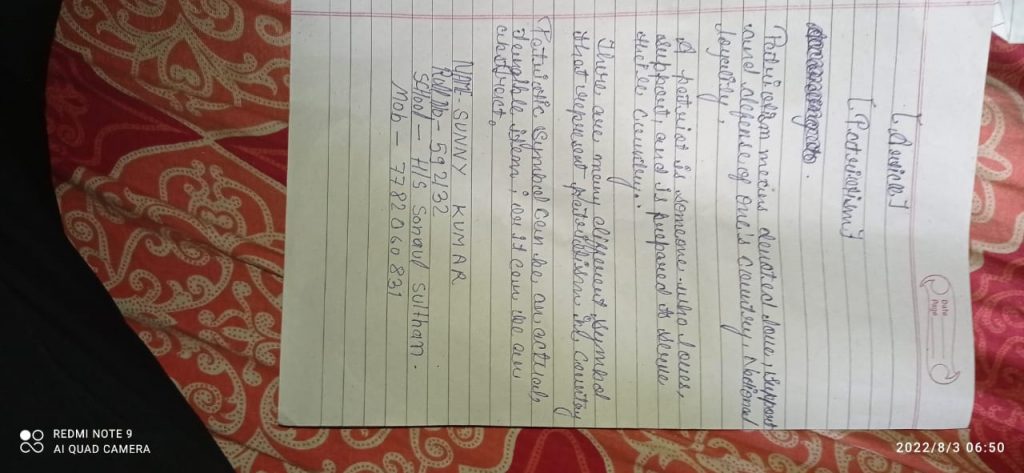 Date
Page
[Patriotism]
Patriotism means devoted love, support
and defense of one's country, National
loyality,
A patriot is someone who loves,
support, and is prepared to serve
his country.
There are many different symbol
that represent patriotism in country
Patriotic symbol can be an actual
tengible istem, or it can be an
abstract.
NAME- SUNNY KUMAR
Roll No- 592132
School- H/S Sonaul Sulthan.
Mob- 7782060831
REDMI NOTE 9
AI QUAD CAMERA
2022/8/3 06:50